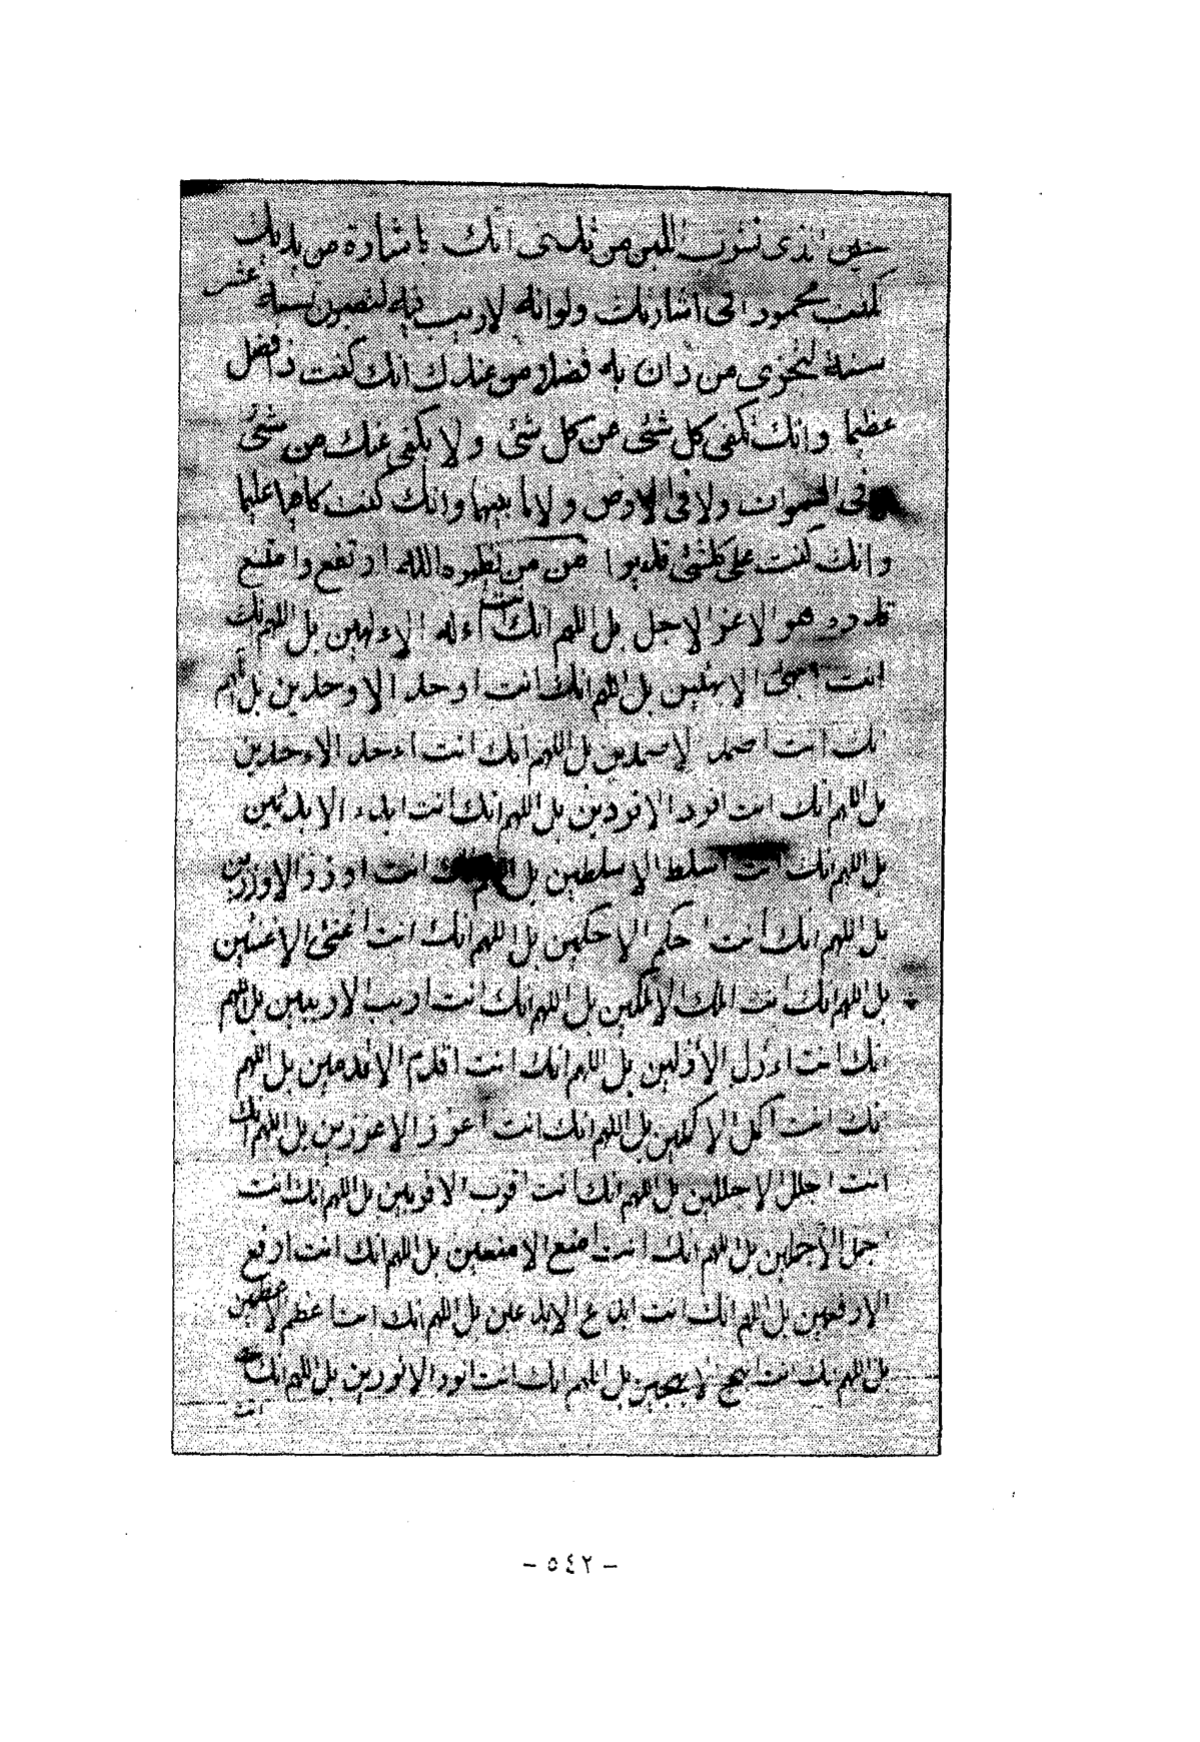 الذى من انك باشارة من يديك
كنت محمودا فى اشارتك ولوانه لاريب فيه لتصبرن تسعة عشر
سنة لتجزى من دان به فضلا من عندك انك كنت ذا فضل
عظيما وانك تكفى كل شئ عن كل شئ ولا يكفى عنك من شئ
فى السموات ولا فى الارض ولا ما بينهما وانك كنت كافيا عليما
وانك كنت على كلشئ قديرا من نظهره الله ارتفع وامتنع
قدره هو الاعز الاجل بل اللهم انك انت اءله الاءلهين بل اللهم انك
انت ابهى الابهيين بل اللهم انك انت اوحد الاوحدين بل اللهم
انك انت اصمد الاصمدين بل اللهم انك انت اءحد الاءحدين
بل اللهم انك انت افرد الافردين بل اللهم انك انت ابدء الابدئين
بل اللهم انك انت اسلط الاسلطين بل اللهم انك انت اوزر الاوزرين
بل اللهم انك انت احكم الاحكمين بل اللهم انك انت اغنى الاغنيين
بل اللهم انك انت املك الاملكين بل اللهم انك انت اربب الارببين بل اللهم
انك انت اءزل الأزلين بل اللهم انك انت اقدم الاقدمين بل اللهم
انك انت اكمل الاكملين بل اللهم انك انت اعزز الاعززين بل اللهم انك
انت اجلل الاجللين بل اللهم انك انت اقرب الاقربين بل اللهم انك انت
اجمل الأجملين بل اللهم انك انت امنع الامنعين بل اللهم انك انت ارفع
الارفعين بل اللهم انك انت ابدع الابدعين بل اللهم انك انت اعظم الاعظمين
بل اللهم انك انت ابهج الابهجين بل اللهم انك انت انور الانورين بل اللهم انك
انت
- ٥٤٢ -